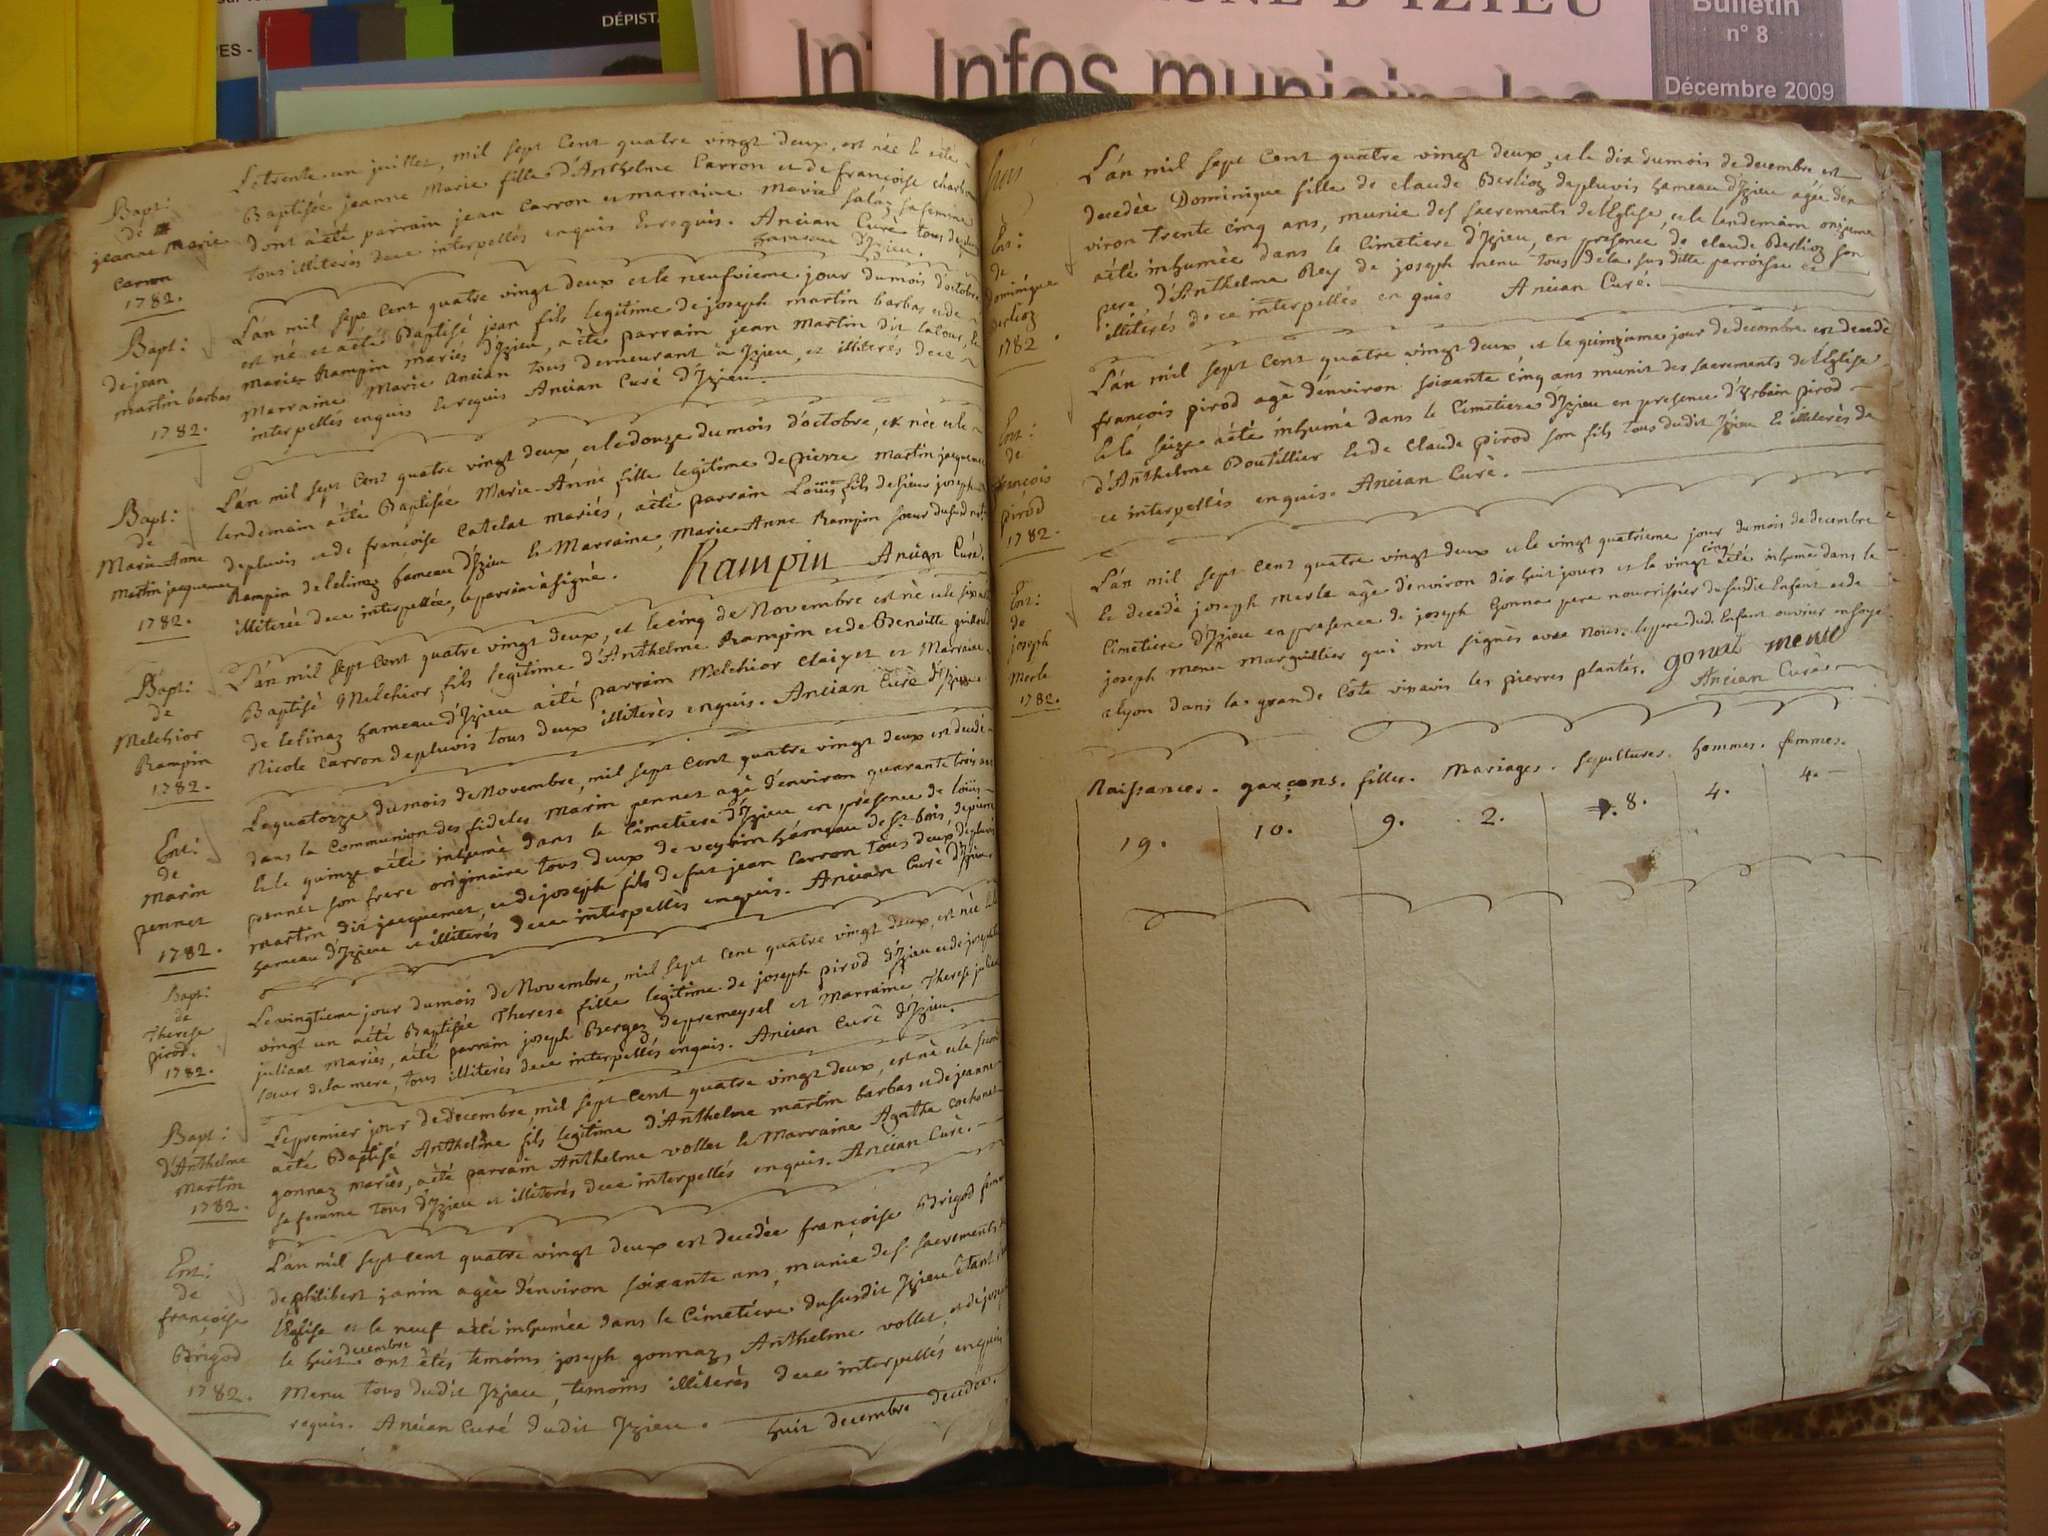 DÉPIST
Infos municipales
Bulletin
n° 8
Décembre 2009
Bapt:
de
jeanne Marie
Carron
1782.
Le trente un juillet, mil sept Cent quatre vingt deux, est née et a été
Baptisée jeanne Marie fille d'Anthelme Carron et de françoise
dont a été parrain jean Carron et marraine Marie salaz sa femme
tous illiterés de ce interpellés enquis et requis. Ancian Curé tous de
hameau d'Izieu.
Bapt:
de jean
martin barbas
1782.
L'an mil sept Cent quatre vingt deux et le neufvieme jour du mois d'octobre
est né et a été Baptisé jean fils legitime de joseph martin barbas et de
Marie Rampin mariés d'Izieu, a été parrain jean Martin dit
Marraine Marie Ancian tous demeurant à Izieu, et illiterés de ce
interpellés enquis et requis Ancian Curé d'Izieu.
Bapt:
de
Marie-Anne
Martin jacquemet
1782.
L'an mil sept Cent quatre vingt deux, et le douze du mois d'octobre, est née et le
lendemain a été Baptisée Marie-Anne fille legitime de pierre martin jacquemet
de pluvis et de françoise Catelat mariés, a été parrain Louis fils de sieur joseph
Rampin de lelinaz hameau d'Izieu et Marraine, Marie-Anne Rampin soeur du susd
illiterée de ce interpellée, le parrain a signé. Rampin Ancian Curé.
Bapt:
de
Melchior
Rampin
1782.
L'an mil sept Cent quatre vingt deux, et le cinq de Novembre est né et le six
Baptisé Melchior fils legitime d'Anthelme Rampin et de Benoitte
de lelinaz hameau d'Izieu a été parrain Melchior Claizet et Marraine
Nicole Carron de pluvis tous deux illiterés enquis. Ancian Curé d'Izieu.
Ent:
de
Marin
pennet
1782.
Le quatorze du mois de Novembre, mil sept Cent quatre vingt deux est decedé
dans la Communion des fideles Marin pennet agé d'environ quarante trois ans
et le quinze a été inhumé dans le Cimetiere d'Izieu en presence de Louis
pennet son frere originaire tous deux de veyrin hameau de st bois, de pierre
martin dit jacquemet, et de joseph fils de fut jean Carron tous deux de pluvis
hameau d'Izieu et illiterés de ce interpellés enquis. Ancian Curé d'Izieu.
Bapt:
de
Therese
pirod.
1782.
Le vingtieme jour du mois de Novembre, mil sept Cent quatre vingt deux, est née et le
vingt un a été Baptisée Therese fille legitime de joseph pirod d'Izieu et de
juliant mariés, a été parrain joseph Berger de premeysel et Marraine Therese
soeur de la mere, tous illiterés de ce interpellés enquis. Ancian Curé d'Izieu.
Bapt:
d'Anthelme
Martin
1782.
Le premier jour de decembre, mil sept Cent quatre vingt deux, est né et le second
a été Baptisé Anthelme fils legitime d'Anthelme martin barbas et de jeanne
gonnaz mariés, a été parrain Anthelme vollet et Marraine Agathe
sa femme tous d'Izieu et illiterés de ce interpellés enquis. Ancian Curé.
Ent:
de
françoise
Brigod
1782.
L'an mil sept cent quatre vingt deux est decedée françoise Brigod femme
de philibert janin agée d'environ soixante ans, munie des sacrements de
l'Eglise et le neuf a été inhumée dans le Cimetiere du susdit Izieu étant
decembre
le huit ont étés temoins joseph gonnaz, Anthelme vollet, et de joseph
Menu tous dudit Izieu, temoins illiterés de ce interpellés enquis
requis. Ancian Curé dudit Izieu. huit decembre decedée.
Ent:
de
Dominique
Berlioz
1782
L'an mil sept Cent quatre vingt deux, et le dix du mois de decembre est
decedée Dominique fille de claude Berlioz de pluvis hameau d'Izieu agée d'en
viron trente cinq ans, munie des sacrements de l'Eglise, et le lendemain onzieme
a été inhumée dans le Cimetiere d'Izieu, en presence de claude Berlioz son
pere d'Anthelme Rey de joseph menu tous de la sus ditte parroisse et
illiterés de ce interpellés enquis Ancian Curé.
Ent:
de
françois
pirod
1782.
L'an mil sept Cent quatre vingt deux, et le quinzieme jour de decembre est decedé
françois pirod agé d'environ soixante cinq ans munit des sacrements de l'Eglise
et le seize a été inhumé dans le Cimetiere d'Izieu en presence d'Urbain pirod
d'Anthelme Boutillier et de Claude pirod son fils tous dudit Izieu et illiterés de
ce interpellés enquis. Ancian Curé.
Ent:
de
joseph
Merle
1782.
L'an mil sept Cent quatre vingt deux et le vingt quatrieme jour du mois de decembre
cinq
le decedé joseph Merle agé d'environ dix huit jours et le vingt a été inhumé dans le
Cimetiere d'Izieu en presence de joseph Gonna pere nourrissier du susdit Enfant et de
joseph menu marguillier qui ont signés avec Nous. le pere dud. Enfant ouvrier en soye
a Lyon dans la grande Côte vis avis les pierres plantés. gonnat menu
Ancian Curé
Naissances. garçons. filles. Mariages. sepultures. hommes. femmes.
19. 10. 9. 2. 8. 4. 4.